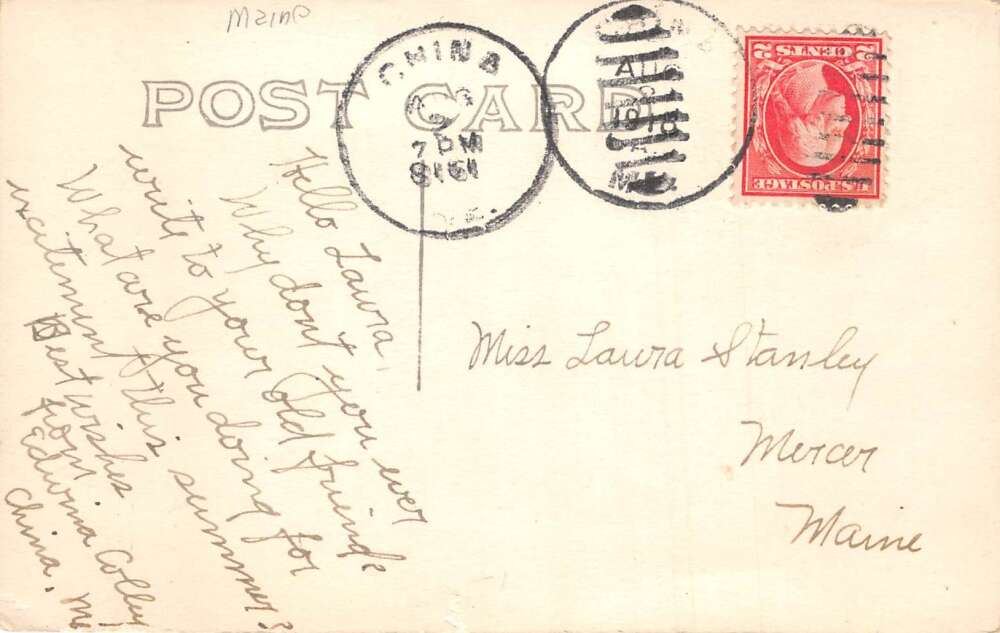 Maine
POST CARD
CHINA
7 PM
1918
ME.
AUG
1918
2 CENTS 2
U.S. POSTAGE
Hello Laura,
Why don't you ever
write to your old friend?
What are you doing for
excitement this summer?
Best wishes
from
Edwina Colley
China, Me
Miss Laura Stanley
Mercer
Maine